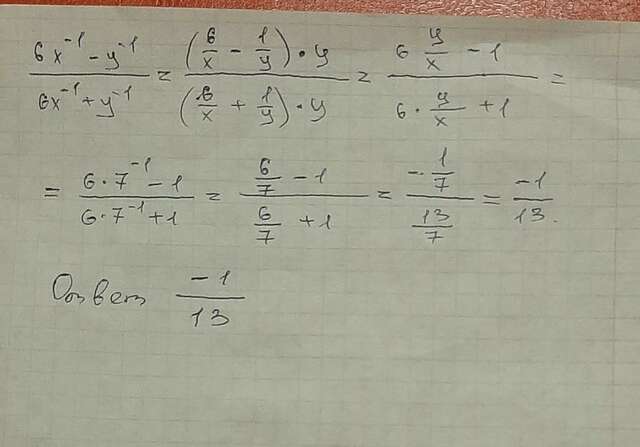 (6x⁻¹ - y⁻¹)/(6x⁻¹ + y⁻¹) = ((6/x - 1/y) · y)/((6/x + 1/y) · y) = (6 y/x - 1)/(6 · y/x + 1) =
= (6 · 7⁻¹ - 1)/(6 · 7⁻¹ + 1) = (6/7 - 1)/(6/7 + 1) = (- 1/7)/(13/7) = -1/13.
Ответ -1/13